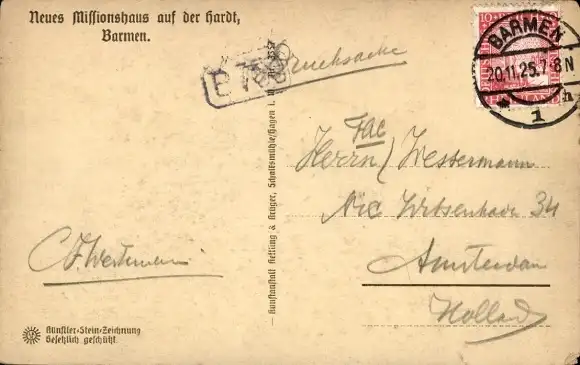 Neues Missionshaus auf der Hardt,
Barmen.
Drucksache
BARMEN
20.11.25.7-8 N
1
Herrn Westermann
Nic Witsenkade 34
Amsterdam
Holland
C.F. Westermann
Kunstanstalt Kettling & Krüger, Schalksmühle/Hagen i. W.
Künstler-Stein-Zeichnung
Gesetzlich geschützt